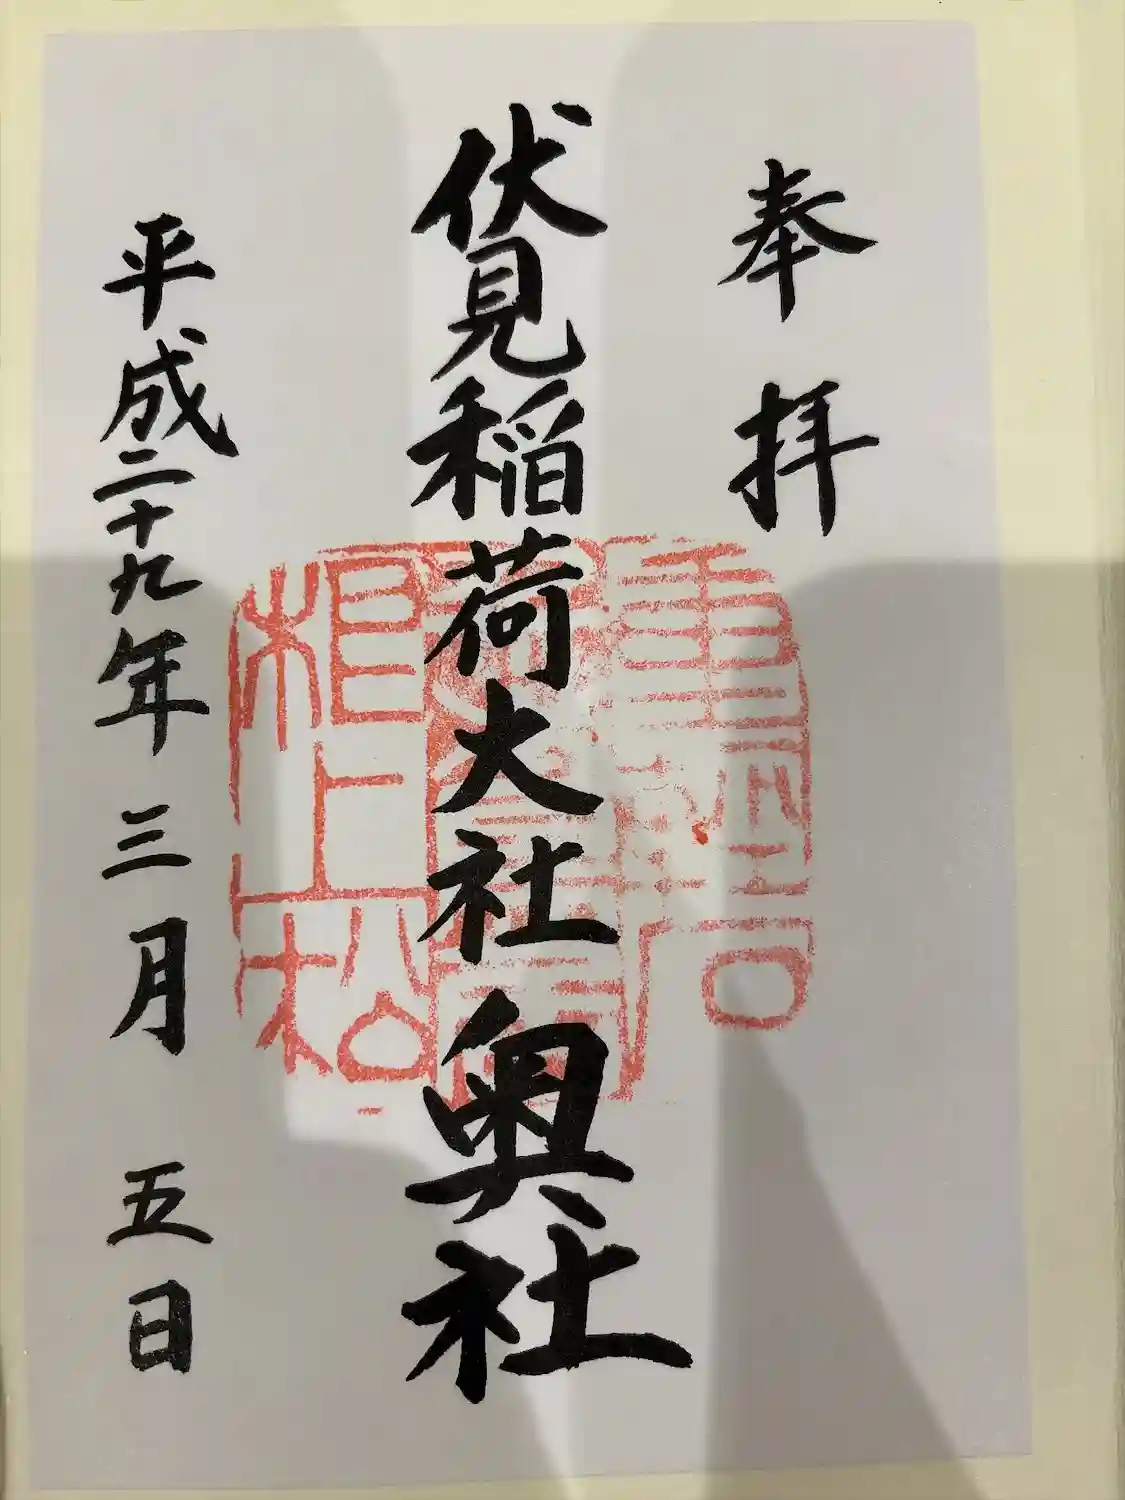 奉拝
伏見稲荷大社奥社
平成二十九年三月五日